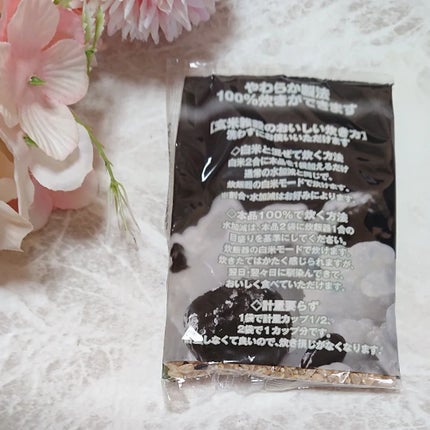 やわらか製法
100%炊きができます
[玄米雑穀のおいしい炊き方]
洗わずにお使いいただけます
◇白米と混ぜて炊く方法
白米2合に本品を1袋加えるだけ
通常の水加減と同じで、
炊飯器の白米モードで炊けます。
※割合・水加減はお好みによります。
◇本品100%で炊く方法
水加減は、本品2袋に炊飯器1合の
目盛りを基準にしてください。
炊飯器の白米モードで炊けます。
炊きたてはかたく感じられますが、
翌日・翌々日に馴染んできて、
おいしく食べていただけます。
◇計量要らず
1袋で計量カップ1/2、
2袋で1カップ分です。
しなくて良いので、炊き損じがなくなります。